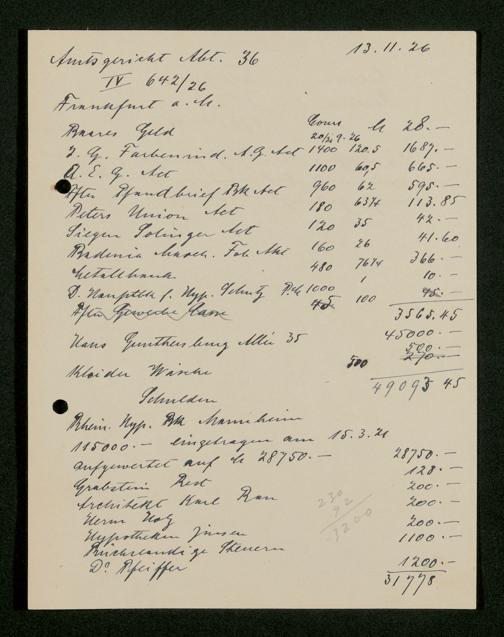 Amtsgericht Abt. 36 13.11.26
IV 642/26
Frankfurt a. M.
Cours
Baares Geld 20/9.26 M 28.—
I. G. Farbenind. A.G. Act 1400 120,5 1687.—
A. E. G. Act 1100 60,5 665.—
Pfandbrief Bk Act 960 62 595.—
Peters Union Act 180 63¼ 113.85
Siegen Solinger Act 120 35 42.—
Badenia Masch. Fab Akt 160 26 41.60
Metallbank 480 76¼ 366.—
D. f. Hyp. Schutz 1000 1 10.—
Gewerbe Kasse 45 100 45.—
3565.45
Haus Gunthersburg Allee 35 45000.—
500.—
270.—
Kleider Wäsche 500
49093 45
Schulden
Rhein. Hyp. Bk Mannheim
115000.— eingetragen am 15.3.21
aufgewertet auf M 28750.— 28750.—
Grabstein Rest 128.—
Architekt Karl Rau 200.—
Herrn Hotz 200.—
Hypotheken Zinsen 200.—
Rückständige Steuern 1100.—
Dr. Pfeiffer 1200.—
31778